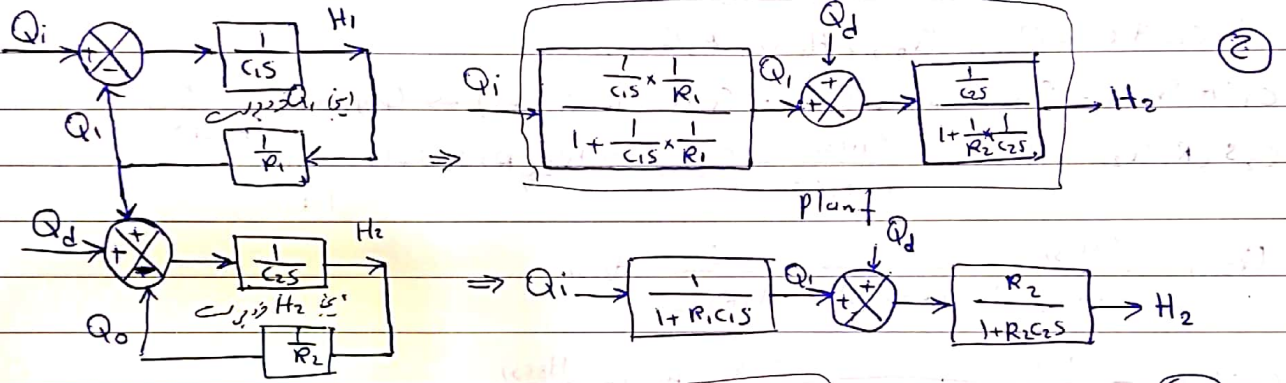 Qi + - 1/C₁S H₁
Q₁ 1/R₁
Qd + + - 1/C₂S H₂
H₂
Q₀ 1/R₂
⇒ Qi (1/C₁S × 1/R₁) / (1 + 1/C₁S × 1/R₁) Q₁ + + Qd (1/C₂S) / (1 + 1/R₂ × 1/C₂S) → H₂
plant
⇒ Qi → 1 / (1 + R₁C₁S) Q₁ + + Qd R₂ / (1 + R₂C₂S) → H₂